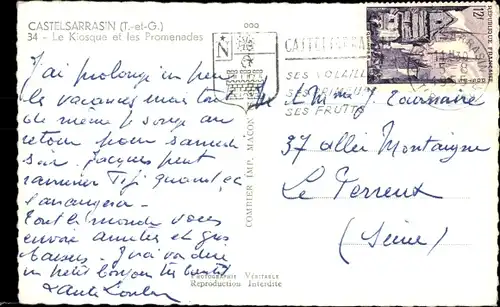 CASTELSARRASIN (T.-et-G.)
34 - Le Kiosque et les Promenades
J'ai prolongé un peu
les vacances mais tout
de même je songe au
retour pour samedi
soir. Jacques peut
ramener Tiji quand ça
l'arrangera.
Tout le monde vous
envoie amitiés et gros
baisers. J'irai vous dire
un petit bonsoir très bientôt
COMBIER IMP. MACON
PHOTOGRAPHIE VÉRITABLE
Reproduction Interdite
N
CASTELSARRA
SES VOLAILL
SES
SES FRUITS
12F
M. Mme J. Tournaire
37 allée Montaigne
Le Perreux
(Seine)